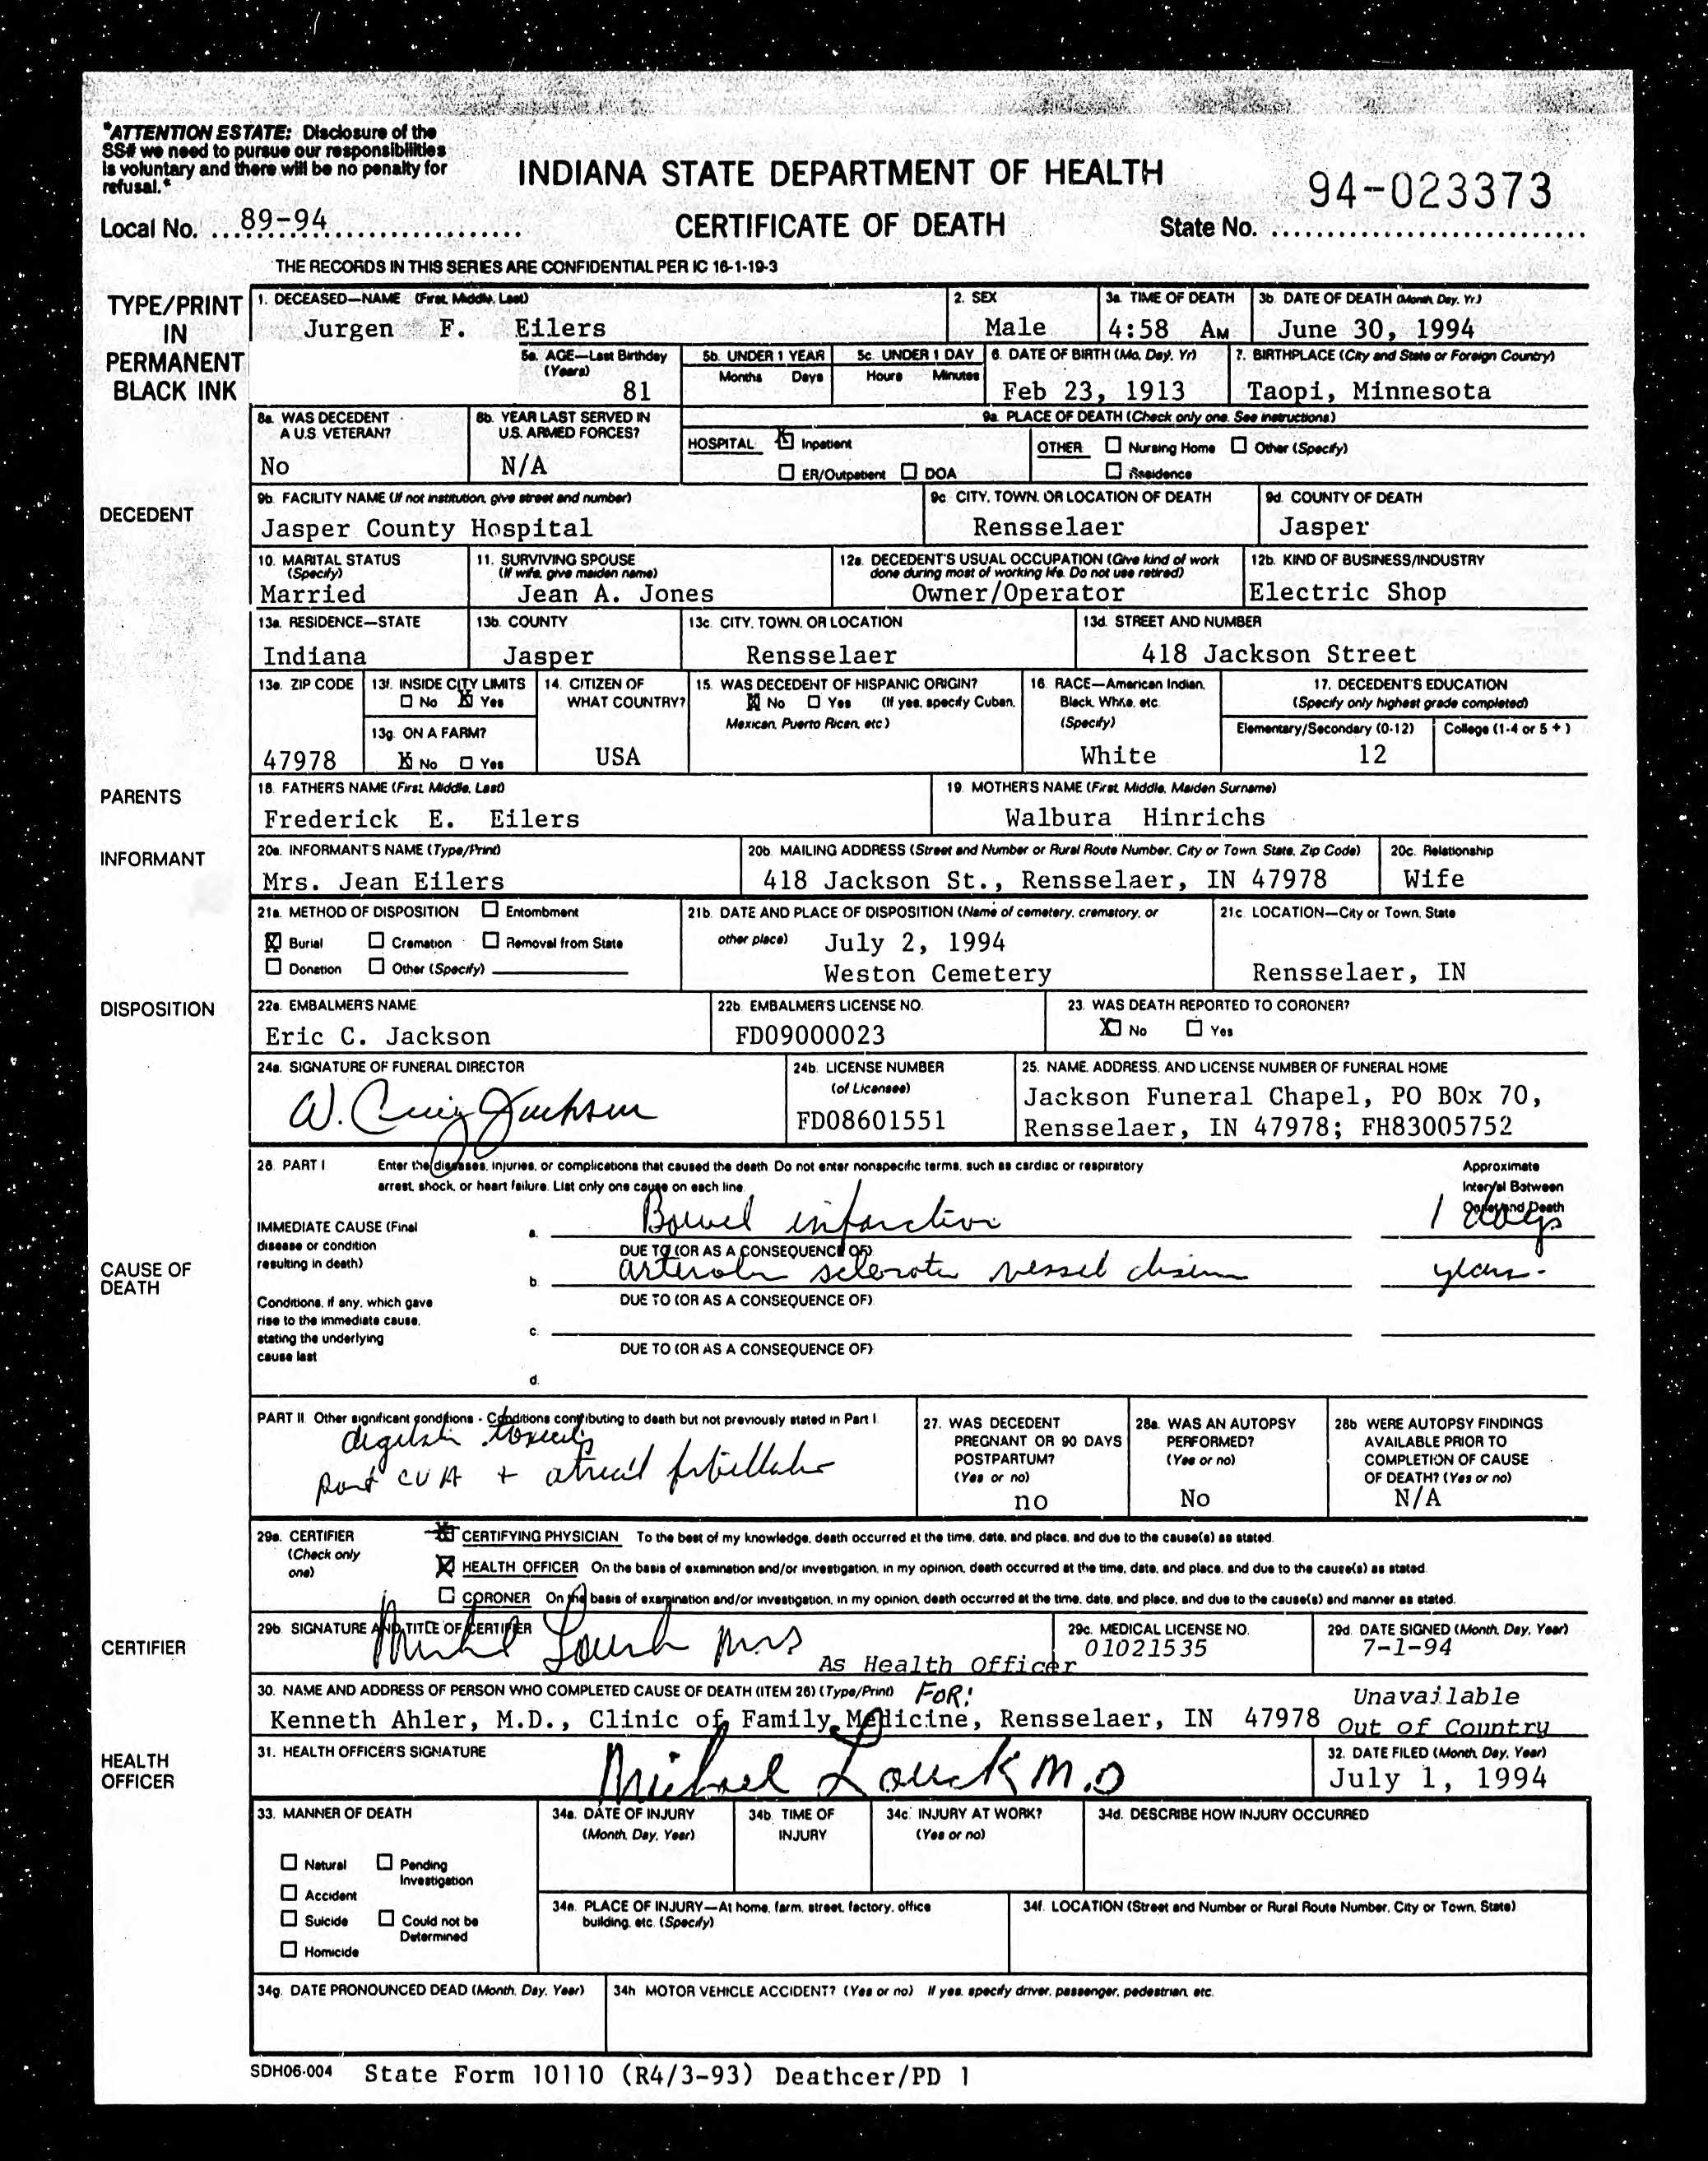 "ATTENTION ESTATE: Disclosure of the
SS# we need to pursue our responsibilities
is voluntary and there will be no penalty for
refusal."
INDIANA STATE DEPARTMENT OF HEALTH
94-023373
Local No. ...89-94...
CERTIFICATE OF DEATH
State No. ...
THE RECORDS IN THIS SERIES ARE CONFIDENTIAL PER IC 16-1-19-3
TYPE/PRINT
IN
PERMANENT
BLACK INK
1. DECEASED—NAME (First, Middle, Last)
Jurgen F. Eilers
2. SEX
Male
3a. TIME OF DEATH
4:58 AM
3b. DATE OF DEATH (Month, Day, Yr.)
June 30, 1994
5a. AGE—Last Birthday
(Years)
81
5b. UNDER 1 YEAR
Months Days
5c. UNDER 1 DAY
Hours Minutes
6. DATE OF BIRTH (Mo, Day, Yr)
Feb 23, 1913
7. BIRTHPLACE (City and State or Foreign Country)
Taopi, Minnesota
DECEDENT
8a. WAS DECEDENT
A U.S. VETERAN?
No
8b. YEAR LAST SERVED IN
U.S. ARMED FORCES?
N/A
9a. PLACE OF DEATH (Check only one. See instructions)
HOSPITAL: ☒ Inpatient
☐ ER/Outpatient ☐ DOA
OTHER ☐ Nursing Home ☐ Other (Specify)
☐ Residence
9b. FACILITY NAME (If not institution, give street and number)
Jasper County Hospital
9c. CITY, TOWN, OR LOCATION OF DEATH
Rensselaer
9d. COUNTY OF DEATH
Jasper
10. MARITAL STATUS
(Specify)
Married
11. SURVIVING SPOUSE
(If wife, give maiden name)
Jean A. Jones
12a. DECEDENT'S USUAL OCCUPATION (Give kind of work
done during most of working life. Do not use retired)
Owner/Operator
12b. KIND OF BUSINESS/INDUSTRY
Electric Shop
13a. RESIDENCE—STATE
Indiana
13b. COUNTY
Jasper
13c. CITY, TOWN, OR LOCATION
Rensselaer
13d. STREET AND NUMBER
418 Jackson Street
13e. ZIP CODE
47978
13f. INSIDE CITY LIMITS
☐ No ☒ Yes
13g. ON A FARM?
☒ No ☐ Yes
14. CITIZEN OF
WHAT COUNTRY?
USA
15. WAS DECEDENT OF HISPANIC ORIGIN?
☒ No ☐ Yes (If yes, specify Cuban,
Mexican, Puerto Rican, etc.)
16. RACE—American Indian,
Black, White, etc.
(Specify)
White
17. DECEDENT'S EDUCATION
(Specify only highest grade completed)
Elementary/Secondary (0-12)
12
College (1-4 or 5+)
PARENTS
18. FATHER'S NAME (First, Middle, Last)
Frederick E. Eilers
19. MOTHER'S NAME (First, Middle, Maiden Surname)
Walbura Hinrichs
INFORMANT
20a. INFORMANT'S NAME (Type/Print)
Mrs. Jean Eilers
20b. MAILING ADDRESS (Street and Number or Rural Route Number, City or Town, State, Zip Code)
418 Jackson St., Rensselaer, IN 47978
20c. Relationship
Wife
DISPOSITION
21a. METHOD OF DISPOSITION ☐ Entombment
☒ Burial ☐ Cremation ☐ Removal from State
☐ Donation ☐ Other (Specify)
21b. DATE AND PLACE OF DISPOSITION (Name of cemetery, crematory, or
other place) July 2, 1994
Weston Cemetery
21c. LOCATION—City or Town, State
Rensselaer, IN
22a. EMBALMER'S NAME
Eric C. Jackson
22b. EMBALMER'S LICENSE NO.
FD09000023
23. WAS DEATH REPORTED TO CORONER?
☒ No ☐ Yes
24a. SIGNATURE OF FUNERAL DIRECTOR
W. Craig Jackson
24b. LICENSE NUMBER
(of Licensee)
FD08601551
25. NAME, ADDRESS, AND LICENSE NUMBER OF FUNERAL HOME
Jackson Funeral Chapel, PO BOx 70,
Rensselaer, IN 47978; FH83005752
CAUSE OF
DEATH
26. PART I Enter the diseases, injuries, or complications that caused the death. Do not enter nonspecific terms, such as cardiac or respiratory
arrest, shock, or heart failure. List only one cause on each line.
Approximate
Interval Between
Onset and Death
IMMEDIATE CAUSE (Final
disease or condition
resulting in death)
a. Bowel infarction 1 days
DUE TO (OR AS A CONSEQUENCE OF)
b. arteriolar sclerotic vessel disease years.
DUE TO (OR AS A CONSEQUENCE OF)
Conditions, if any, which gave
rise to the immediate cause,
stating the underlying
cause last
c.
DUE TO (OR AS A CONSEQUENCE OF)
d.
PART II Other significant conditions - Conditions contributing to death but not previously stated in Part I.
toxicity
CVA + atrial fibillation
27. WAS DECEDENT
PREGNANT OR 90 DAYS
POSTPARTUM?
(Yes or no)
no
28a. WAS AN AUTOPSY
PERFORMED?
(Yes or no)
No
28b WERE AUTOPSY FINDINGS
AVAILABLE PRIOR TO
COMPLETION OF CAUSE
OF DEATH? (Yes or no)
N/A
CERTIFIER
29a. CERTIFIER
(Check only
one)
☒ CERTIFYING PHYSICIAN To the best of my knowledge, death occurred at the time, date, and place, and due to the cause(s) as stated.
☒ HEALTH OFFICER On the basis of examination and/or investigation, in my opinion, death occurred at the time, date, and place, and due to the cause(s) as stated.
☐ CORONER On the basis of examination and/or investigation, in my opinion, death occurred at the time, date, and place, and due to the cause(s) and manner as stated.
29b. SIGNATURE AND TITLE OF CERTIFIER
Michael Louck
As Health Officer
29c. MEDICAL LICENSE NO.
01021535
29d. DATE SIGNED (Month, Day, Year)
7-1-94
30. NAME AND ADDRESS OF PERSON WHO COMPLETED CAUSE OF DEATH (ITEM 26) (Type/Print) FOR!
Kenneth Ahler, M.D., Clinic of Family Medicine, Rensselaer, IN 47978
Unavailable
Out of Country
HEALTH
OFFICER
31. HEALTH OFFICER'S SIGNATURE
Michael Louck M.D
32. DATE FILED (Month, Day, Year)
July 1, 1994
33. MANNER OF DEATH
☐ Natural ☐ Pending
Investigation
☐ Accident
☐ Suicide ☐ Could not be
Determined
☐ Homicide
34a. DATE OF INJURY
(Month, Day, Year)
34b. TIME OF
INJURY
34c. INJURY AT WORK?
(Yes or no)
34d. DESCRIBE HOW INJURY OCCURRED
34e. PLACE OF INJURY—At home, farm, street, factory, office
building, etc. (Specify)
34f. LOCATION (Street and Number or Rural Route Number, City or Town, State)
34g. DATE PRONOUNCED DEAD (Month, Day, Year)
34h MOTOR VEHICLE ACCIDENT? (Yes or no) If yes, specify driver, passenger, pedestrian, etc.
SDH06-004 State Form 10110 (R4/3-93) Deathcer/PD 1